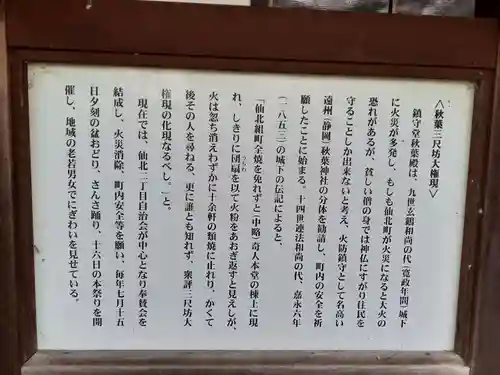 〈秋葉三尺坊大権現〉
鎮守堂秋葉殿は、九世玄鶴和尚の代(寛政年間)城下
に火災が多発し、もしも仙北町が火災になると大火の
恐れがあるが、貧しい僧の身では神仏にすがり住民を
守ることしか出来ないと考え、火防鎮守として名高い
遠州(静岡)秋葉神社の分体を勧請し、町内の安全を祈
願したことに始まる。十四世連法和尚の代、嘉永六年
(一八五三)の城下の伝記によると、
「仙北組町全焼を免れずと(中略)奇人本堂の棟上に現
れ、しきりに団扇を以て火粉をあおぎ返すと見えしが、
うちわ
火は忽ち消えわずかに十余軒の類焼に止れり、かくて
後その人を尋ねる、更に誰とも知れず、衆評三尺坊大
権現の化現なるべし。」と。
現在では、仙北二丁目自治会が中心となり奉賛会を
結成し、火災消除、町内安全等を願い、毎年七月十五
日夕刻の盆おどり、さんさ踊り、十六日の本祭りを開
催し、地域の老若男女でにぎわいを見せている。